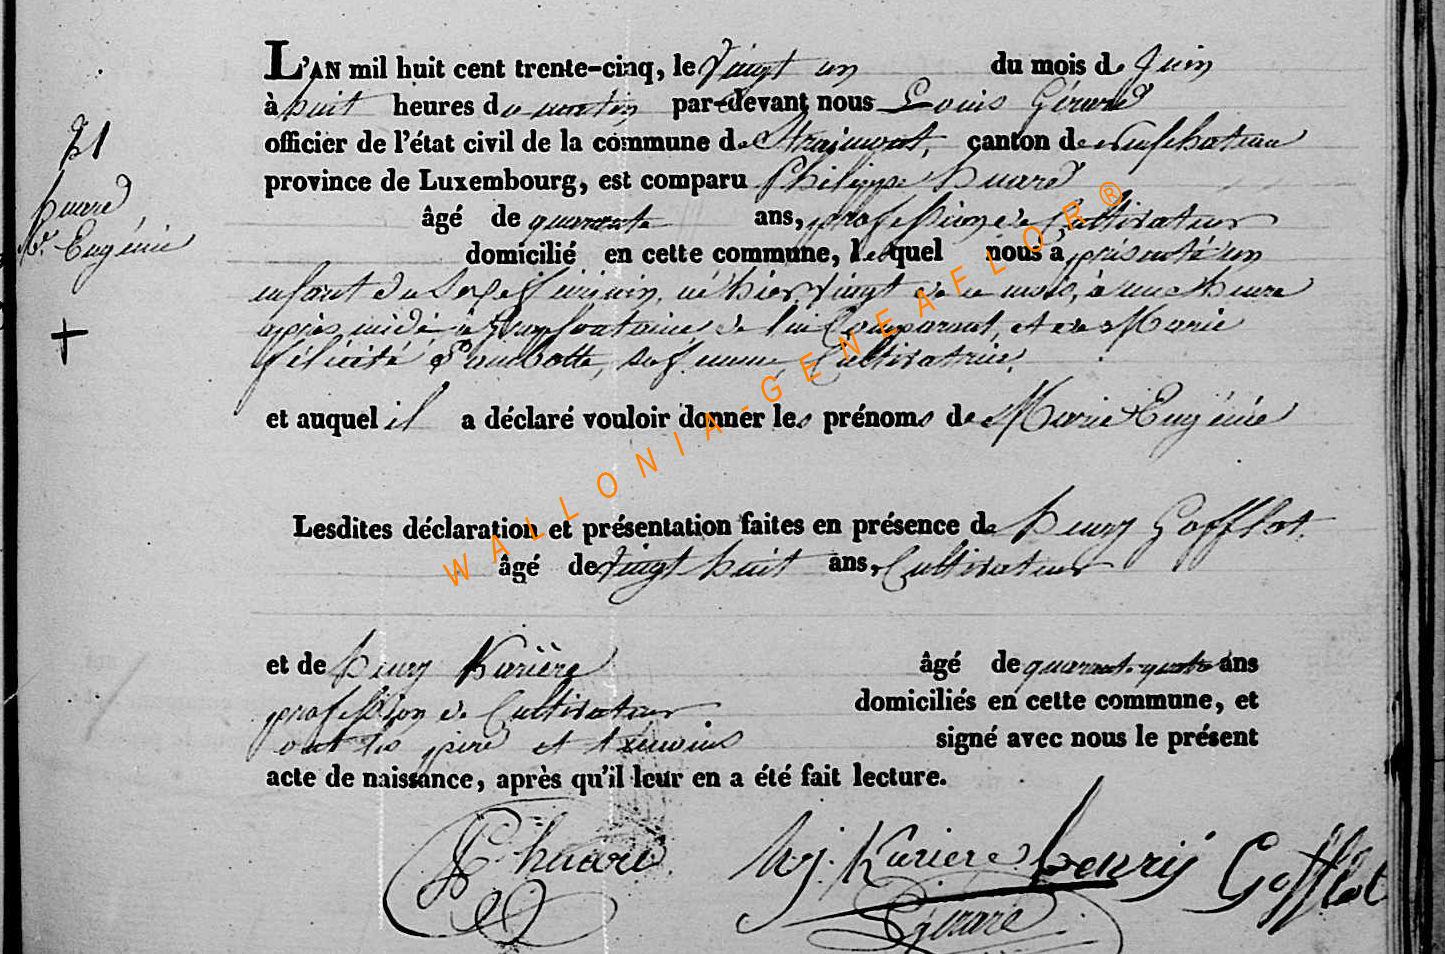 L'AN mil huit cent trente-cinq, le vingt un du mois de Juin
à huit heures du matin par-devant nous Louis Gérard
officier de l'état civil de la commune de Straimont, canton de neufchateau
province de Luxembourg, est comparu Philippe huard
âgé de quarante ans, profession de Cultivateur
domicilié en cette commune, lequel nous a présenté un
enfant du Sexe feminin, né hier vingt de ce mois, à une heure
après midi à de lui Comparant, et de Marie
félicité sa femme, Cultivatrice,
et auquel il a déclaré vouloir donner les prénoms de Marie Eugénie
Lesdites déclaration et présentation faites en présence de henry Gofflot,
âgé de vingt huit ans, Cultivateur
et de henry Karière âgé de quarante quatre ans
profession de Cultivateur domiciliés en cette commune, et
ont les père et témoins signé avec nous le présent
acte de naissance, après qu'il leur en a été fait lecture.
huard
hj. Kariere henrij Gofflot
Gérard
21
huard
Me. Eugénie
WALLONIA-GENEAFLOR®